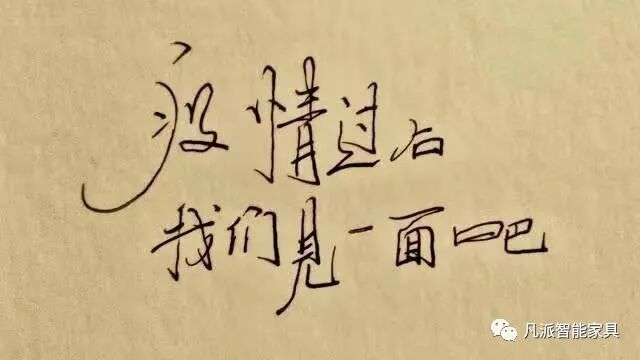 疫情过后
我们见一面吧
凡派智能家具